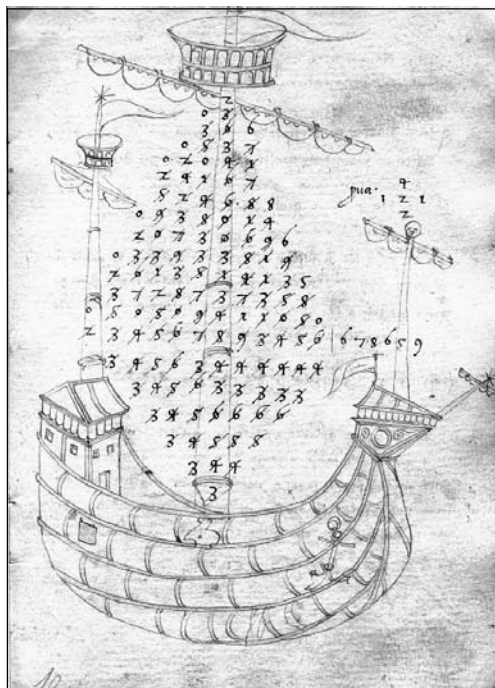 2
0 3
3 6 6
0 8 3 7
0 2 0 4 1
2 4 1 6 7
4
pua.
1 2 1
2
5 2 4 6 8 8
0 9 3 8 0 1 4
2 0 7 3 0 6 9 6
0 3 3 9 3 3 8 1 9
2 0 1 3 8 1 4 1 3 5
3 7 2 8 7 3 7 3 5 8
0 5 0 5 0 9 4 1 1 0 8 0
2 3 4 5 6 7 8 9 3 4 5 6 | 6 7 8 6 5 9
3 4 5 6 3 4 4 4 4 4
3 4 5 6 3 3 3 3
3 4 5 6 6 6
3 4 5 5 5
3 4 4
3